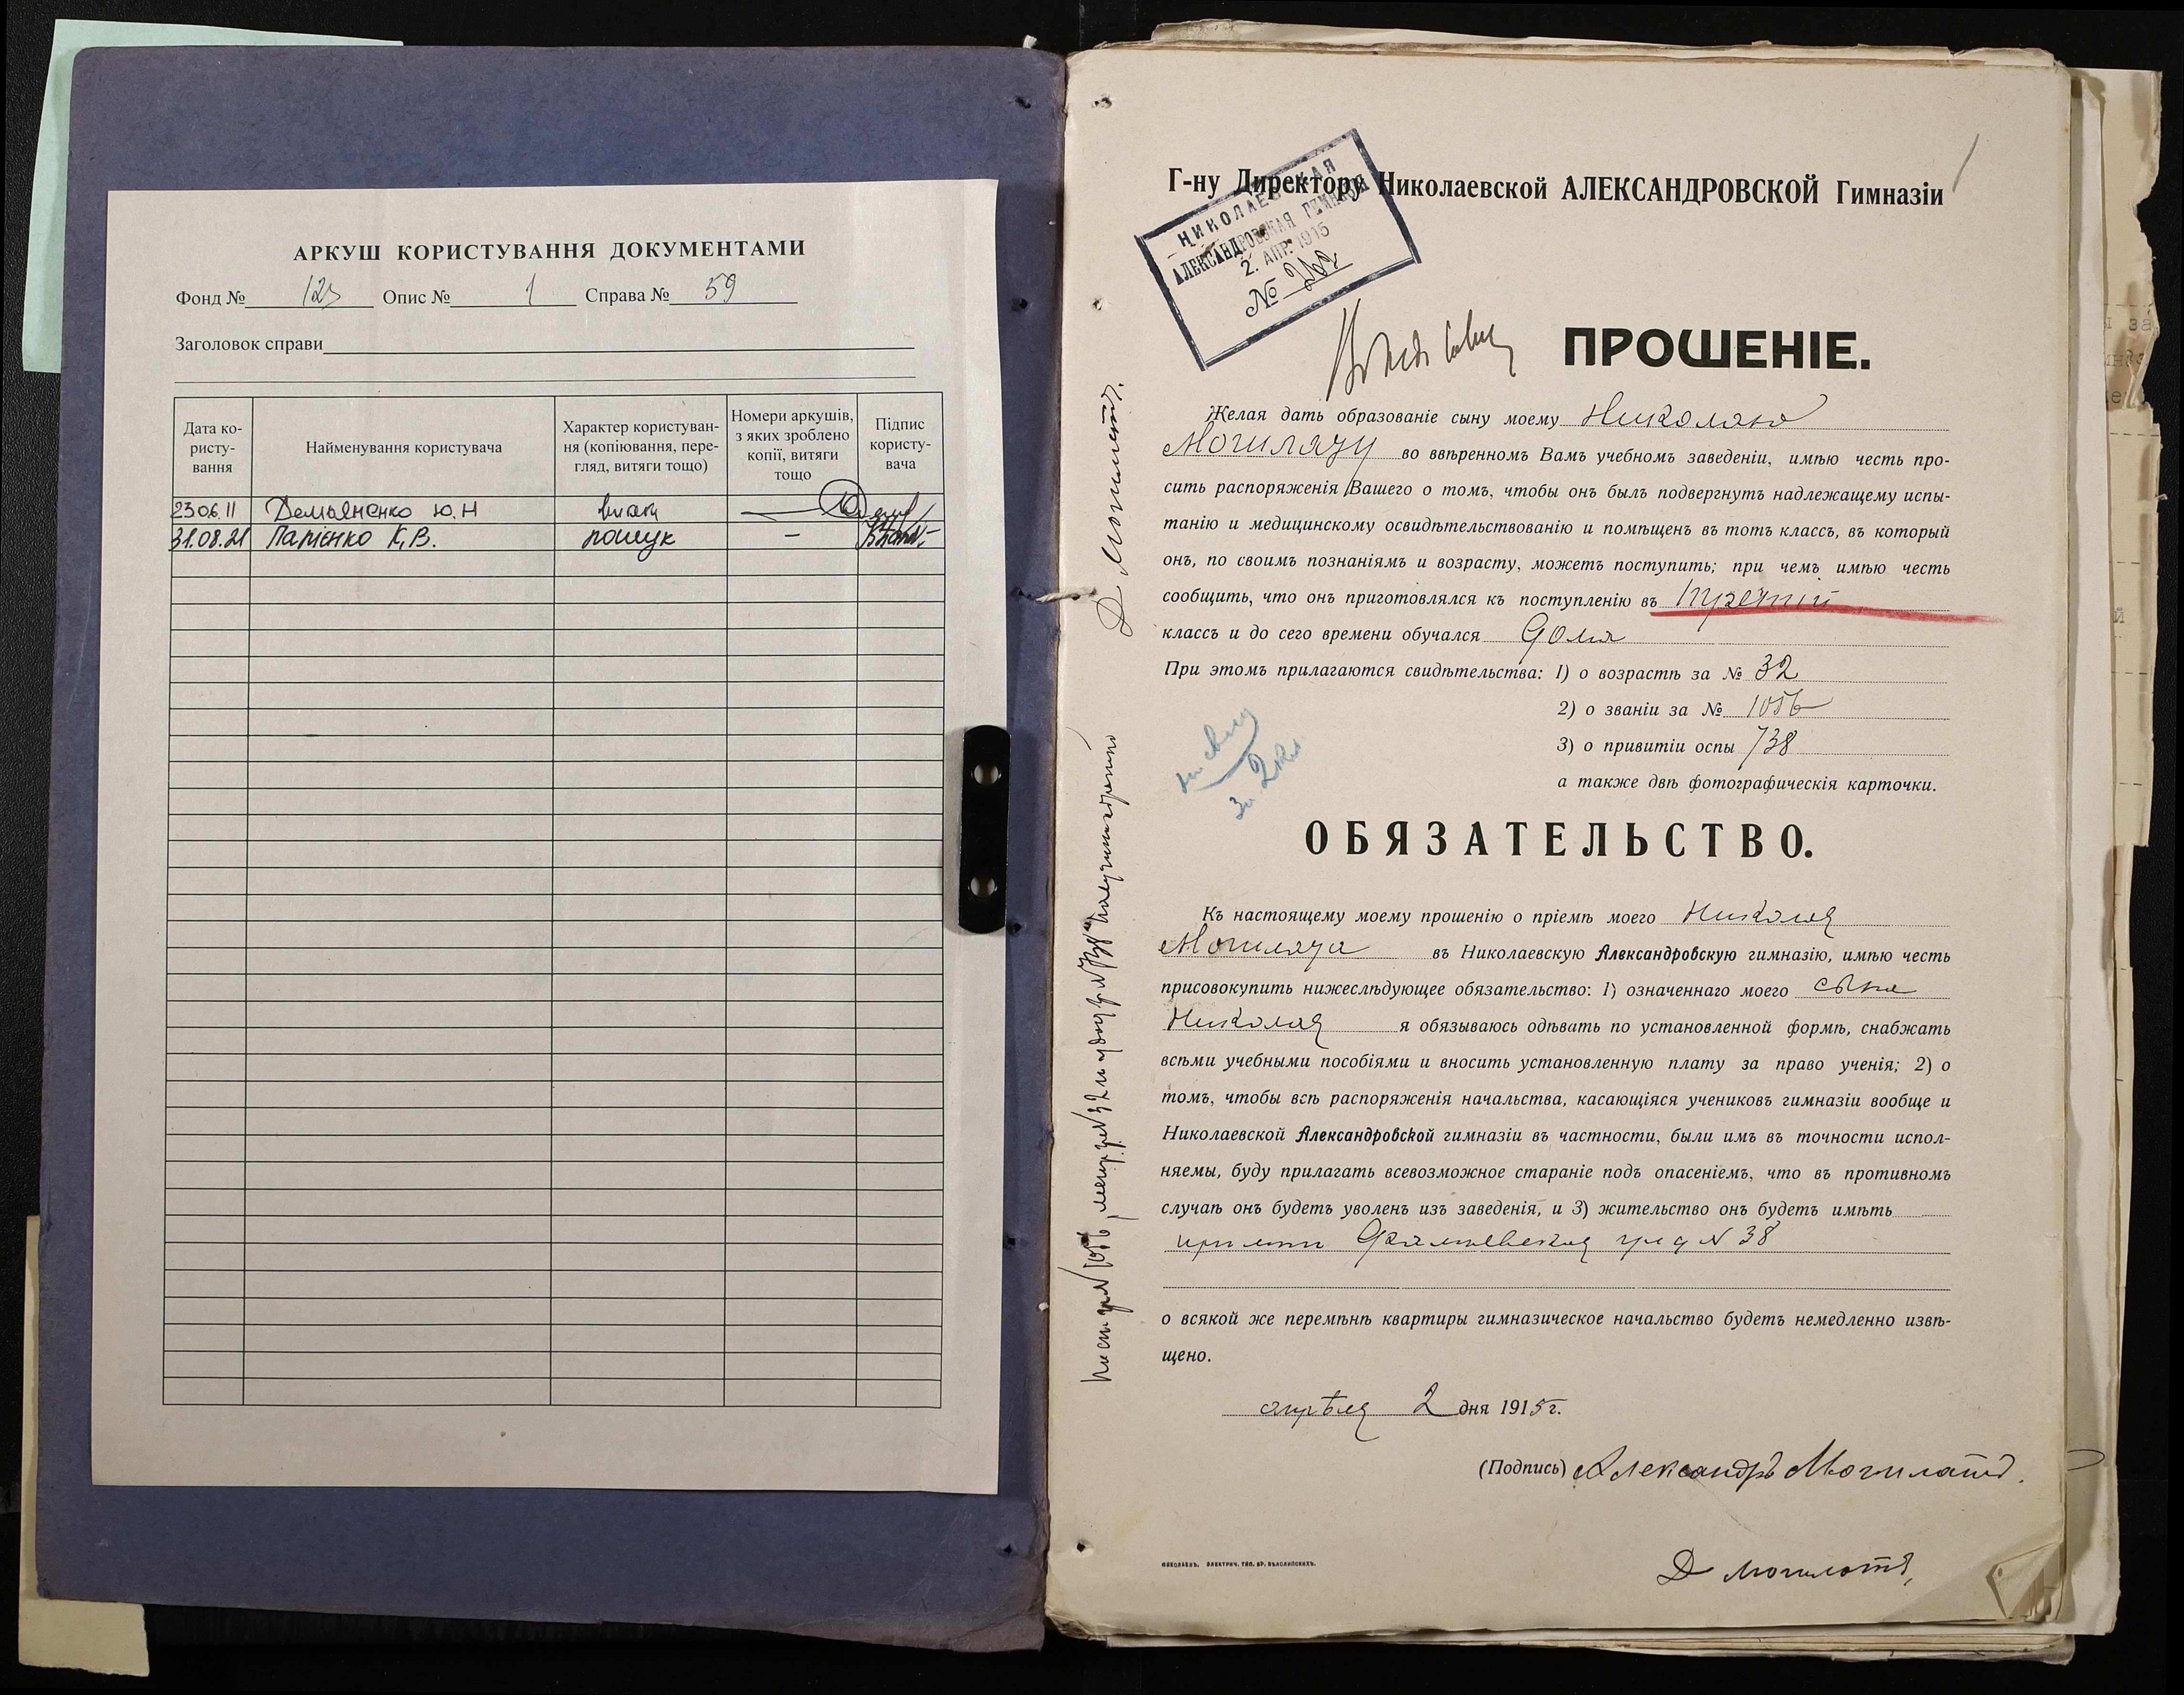 АРКУШ КОРИСТУВАННЯ ДОКУМЕНТАМИ
Фонд № 123 Опис № 1 Справа № 59
Заголовок справи
Дата ко-
ристу-
вання
Найменування користувача
Характер користуван-
ня (копіювання, пере-
гляд, витяги тощо)
Номери аркушів,
з яких зроблено
копії, витяги
тощо
Підпис
користу-
вача
23.06.11 Демьяненко Ю.Н —
31.08.21 Папієнко К.В. пошук –
Г-ну Директору Николаевской АЛЕКСАНДРОВСКОЙ Гимназіи
НИКОЛАЕВСКАЯ
АЛЕКСАНДРОВСКАЯ ГИМНАЗІЯ
2. АПР. 1915
№
ПРОШЕНІЕ.
Желая дать образованіе сыну моему Николаю
Могилату во ввѣренномъ Вамъ учебномъ заведеніи, имѣю честь про-
сить распоряженія Вашего о томъ, чтобы онъ былъ подвергнутъ надлежащему испы-
танію и медицинскому освидѣтельствованію и помѣщенъ въ тотъ классъ, въ который
онъ, по своимъ познаніямъ и возрасту, можетъ поступить; при чемъ имѣю честь
сообщить, что онъ приготовлялся къ поступленію въ
классъ и до сего времени обучался дома
При этомъ прилагаются свидѣтельства: 1) о возрастѣ за № 32
2) о званіи за № 1056
3) о привитіи оспы 738
а также двѣ фотографическія карточки.
за 2 кл
ОБЯЗАТЕЛЬСТВО.
Къ настоящему моему прошенію о пріемѣ моего Николая
Могилата въ Николаевскую Александровскую гимназію, имѣю честь
присовокупить нижеслѣдующее обязательство: 1) означеннаго моего сына
Николая я обязываюсь одѣвать по установленной формѣ, снабжать
всѣми учебными пособіями и вносить установленную плату за право ученія; 2) о
томъ, чтобы всѣ распоряженія начальства, касающіяся учениковъ гимназіи вообще и
Николаевской Александровской гимназіи въ частности, были имъ въ точности испол-
няемы, буду прилагать всевозможное стараніе подъ опасеніемъ, что въ противномъ
случаѣ онъ будетъ уволенъ изъ заведенія, и 3) жительство онъ будетъ имѣть
при мнѣ № 38
о всякой же перемѣнѣ квартиры гимназическое начальство будетъ немедленно извѣ-
щено.
апрѣля 2 дня 1915 г.
(Подпись) Александръ Могилатъ.
Д Могилатъ,
НИКОЛАЕВЪ. ЭЛЕКТРИЧ. ТИП. БР. БѢЛОЛИПСКИХЪ.
Д Могилатъ.